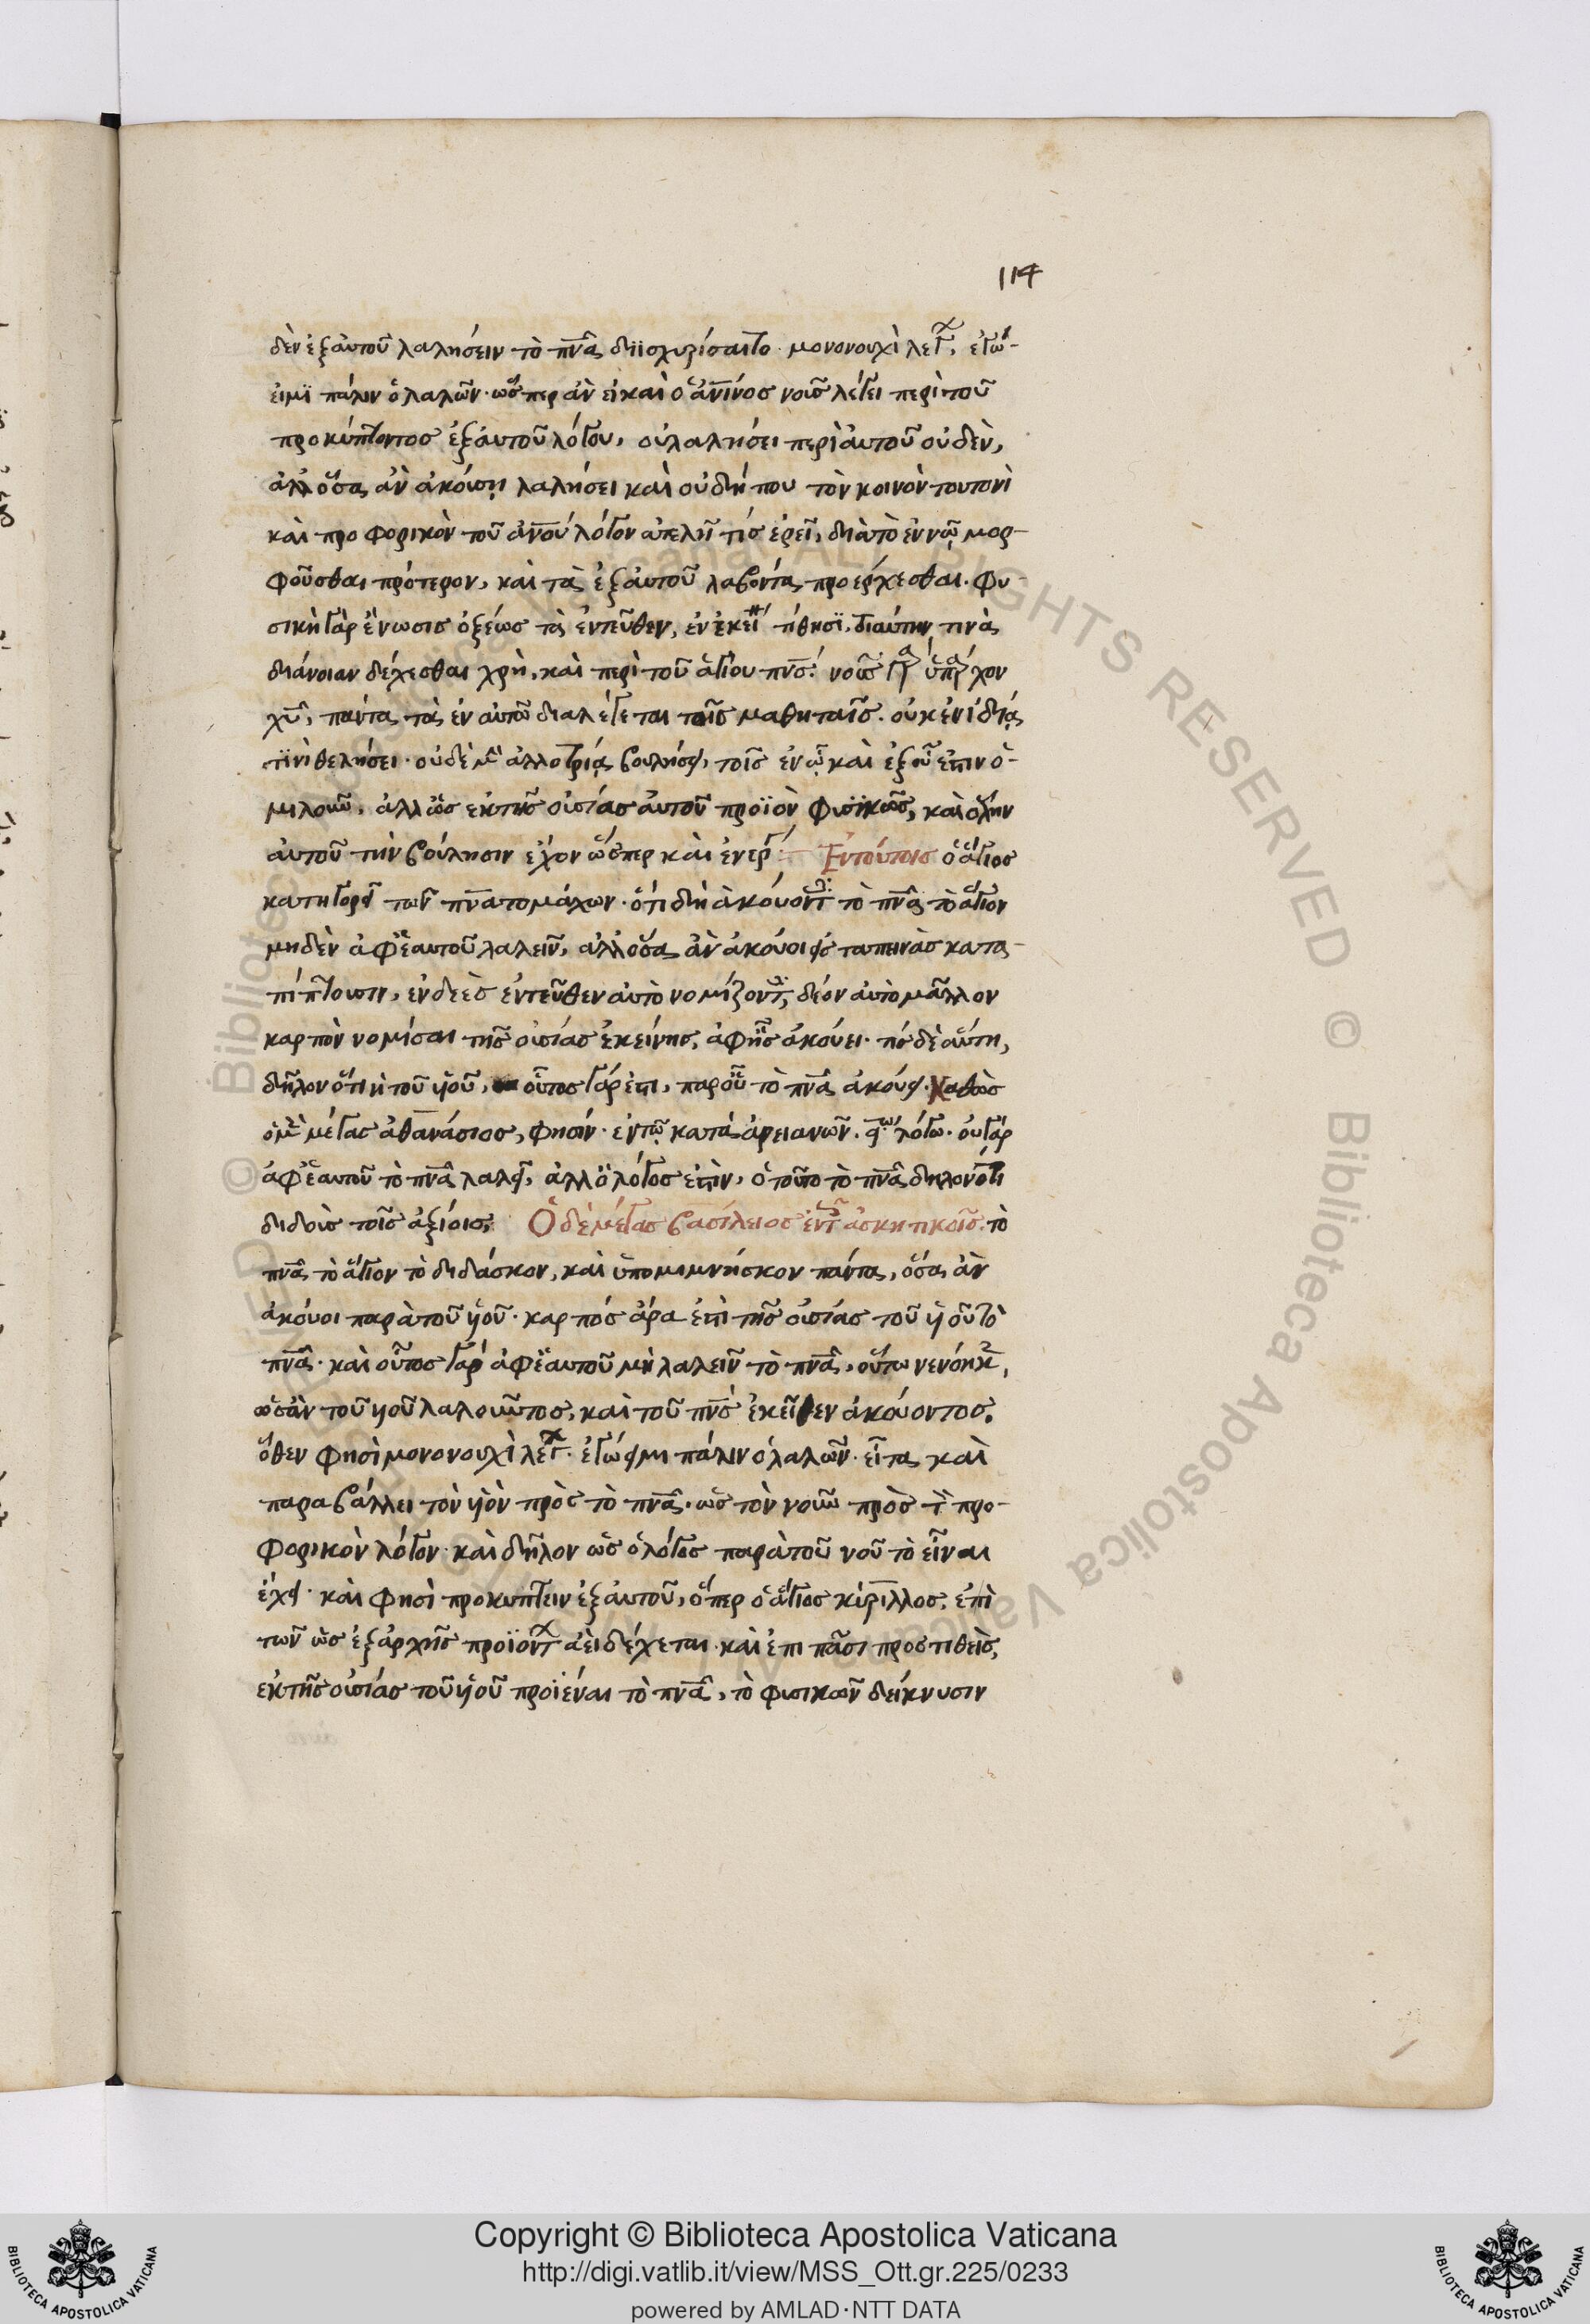 114
δὲν ἐξ αὐτοῦ λαλήσειν τὸ πν̅α διϊσχυρίσαιτο· μονονουχὶ λέγ, ἐγώ-
εἰμϊ πάλιν ὁ λαλῶν· ὥσπερ ἂν εἰ καὶ ὁ ἀν̅ινος νοῦς λέγει περὶ τοῦ
προκύπτοντος ἐξ αὐτοῦ λόγου, οὐ λαλήσει περὶ αὐτοῦ οὐδὲν,
ἀλλ ὅσα ἂν ἀκούσῃ λαλήσει καὶ οὐ δήπου τὸν κοινὸν τουτονὶ
καὶ προφορικὸν τοῦ ἀν̅ου λόγον ἀτελῆ τίς ἐρεῖ, διὰ τὸ ἐν νῷ μορ-
φοῦσθαι πρότερον, καὶ τὰ ἐξ αὐτοῦ λαβόντα προέρχεσθαι. Φυ-
σικὴ γὰρ ἕνωσις ὀξέως τὰ ἐντεῦθεν, ἐν ἐκεί τίθησϊ, τιαύτην τινὰ
διάνοιαν δέχεσθαι χρὴ, καὶ περὶ τοῦ ἁγίου πν̅ς. νοῦς γὰρ ὑπάρχον
χυ̅, πάντα τὰ ἐν αὐτῷ διαλέγεται τοῖς μαθηταῖς. οὐκ ἐν ἰδίᾳ
τϊνὶ θελήσει· οὐδὲ μὴν ἀλλοτρίᾳ βουλήσει, τοῖς ἐν ᾧ καὶ ἐξ οὗ ἐστιν ὁ-
μιλοῦν, ἀλλ ὡς ἐκ τῆς οὐσίας αὐτοῦ προϊὸν φυσϊκῶς, καὶ ὅλην
αὐτοῦ τὴν βούλησιν ἔχον ὥσπερ καὶ ἐνέργ. Ἐν τούτοις ὁ ἅγιος
κατηγορεῖ τῶν πν̅ατομάχων· ὅτι δὴ ἀκούοντ τὸ πν̅α τὸ ἅγιον
μηδὲν ἀφ ἑαυτοῦ λαλεῖν, ἀλλ ὅσα ἂν ἀκούοι εἰς ταπεινὰς κατα-
πίπτουσιν, ἐνδεὲς ἐντεῦθεν αὐτὸ νομίζοντ, δέον αὐτὸ μᾶλλον
καρπὸν νομίσαι τῆς οὐσίας ἐκείνης, ἀφ ἧς ἀκούει· τίς δὲ αὕτη,
δῆλον ὅτι ἡ τοῦ υἱοῦ, οὗτος γάρ ἐστι, παρ οὗ τὸ πν̅α ἀκούει. καθὼς
ὁ μὲν μέγας ἀθανάσιος, φησίν· ἐν τῷ κατὰ ἀρειανῶν. λόγω· οὐ γάρ
ἀφ ἑαυτοῦ τὸ πν̅α λαλεῖ, ἀλλ ὁ λόγος ἐστὶν, ὁ τοῦτο τὸ πν̅α δηλονότι
διδοὺς τοῖς ἀξίοις, Ὁ δὲ μέγας βασίλειος ἐν τ ἀσκητικοῖς. τὸ
πν̅α τὸ ἅγιον τὸ διδάσκον, καὶ ὑπομιμνῆσκον πάντα, ὅσα ἂν
ἀκούοι παρὰ τοῦ υἱοῦ· καρπός ἄρα ἐστὶ τῆς οὐσίας τοῦ υἱοῦ τὸ
πν̅α· καὶ οὗτος γάρ ἀφ ἑαυτοῦ μὴ λαλεῖν τὸ πν̅α, οὕτω νενόηκ,
ὡς ἂν τοῦ υἱοῦ λαλοῦντος, καὶ τοῦ πν̅ς ἐκεῖθεν ἀκούοντος.
ὅθεν φησὶ μονονουχὶ λέγ· ἐγώ εἰμι πάλιν ὁ λαλῶν· εἶτα καὶ
παραβάλλει τὸν υἱὸν πρὸς τὸ πν̅α· ὡς τὸν νοῦν πρὸς τ προ-
φορικὸν λόγον· καὶ δῆλον ὡς ὁ λόγος παρὰ τοῦ νοῦ τὸ εἶναι
ἔχει· καὶ φησὶ προκύπτειν ἐξ αὐτοῦ, ὅπερ ὁ ἅγιος κύριλλος, ἐπὶ
τῶν ὡς ἐξ ἀρχῆς προϊόντ ἀεὶ δέχεται· καὶ ἐπι πᾶσι προστιθεὶς,
ἐκ τῆς οὐσίας τοῦ υἱοῦ προϊέναι τὸ πν̅α, τὸ φυσικῶν δείκνυσιν
Copyright © Biblioteca Apostolica Vaticana
http://digi.vatlib.it/view/MSS_Ott.gr.225/0233
powered by AMLAD·NTT DATA